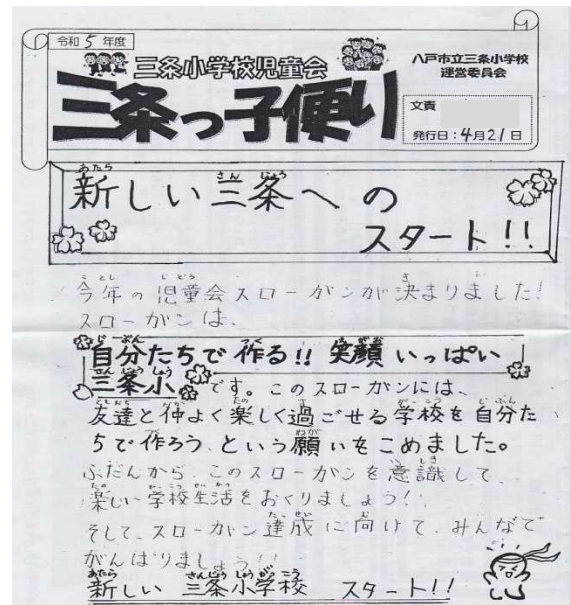 令和5年度
1
三条小学校児童会
八戸市立三条小学校
運営委員会
三条っ子便り
文責
発行日：4月21日
新しい三条への
スタート!!
今年の児童会スローガンが決まりました!
スローガンは、
自分たちで作る!! 笑顔いっぱい
三条小です。このスローガンには、
友達と仲よく楽しく過ごせる学校を自分た
ちで作ろう、という願いをこめました。
ふだんから、このスローガンを意識して、
楽しい学校生活をおくりましょう!
そして、スローガン達成に向けて、みんなで
がんばりましょう!!
新しい 三条小学校 スタート!!